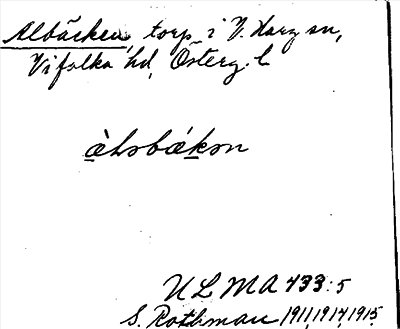 Albäcken, torp i V. Harg sn,
Vifolka hd, Österg. l
àlsbákən
ULMA 433:5
S. Rothman 1911, 1914, 1915